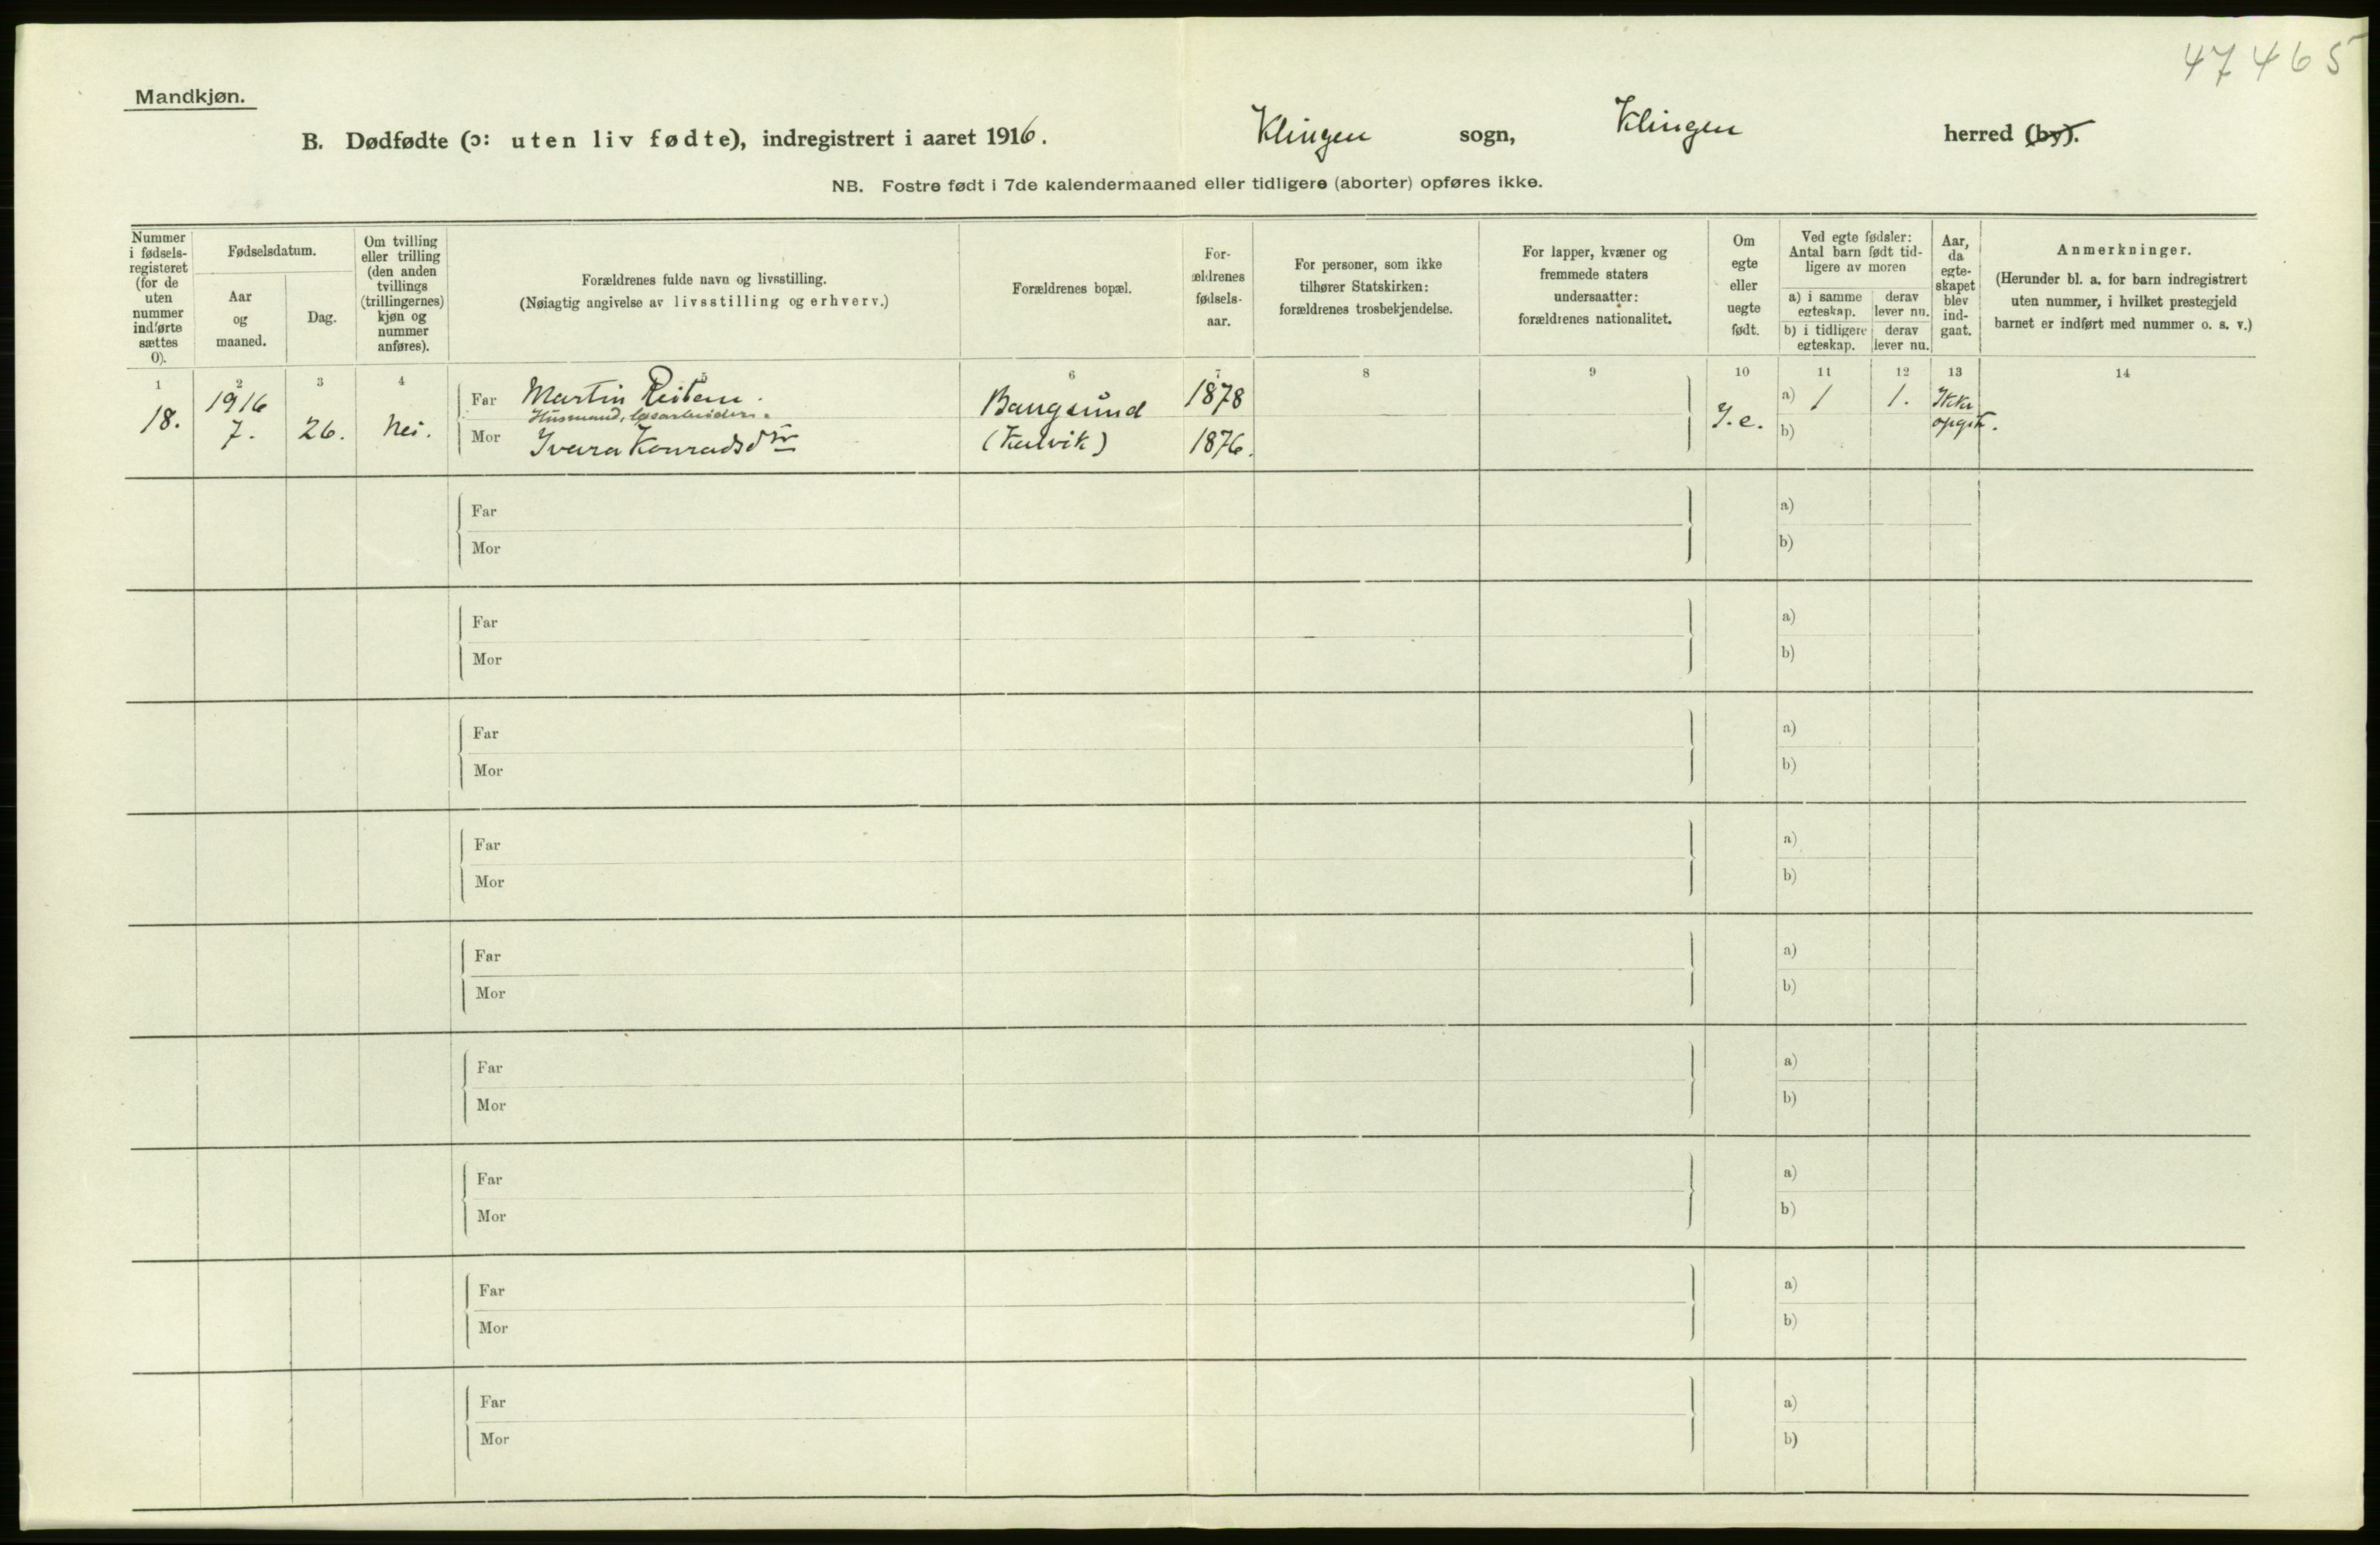 47465
Mandkjøn.
B. Dødfødte (ɔ: uten liv fødte), indregistrert i aaret 1916. Klingen sogn, Klingen herred (by).
NB. Fostre født i 7de kalendermaaned eller tidligere (aborter) opføres ikke.
Nummer
i fødsels-
registeret
(for de
uten
nummer
indførte
sættes
0).
Fødselsdatum.
Aar
og
maaned.
Dag.
Om tvilling
eller trilling
(den anden
tvillings
(trillingernes)
kjøn og
nummer
anføres).
Forældrenes fulde navn og livsstilling.
(Nøiagtig angivelse av livsstilling og erhverv.)
Forældrenes bopæl.
For-
ældrenes
fødsels-
aar.
For personer, som ikke
tilhører Statskirken:
forældrenes trosbekjendelse.
For lapper, kvæner og
fremmede staters
undersaatter:
forældrenes nationalitet.
Om
egte
eller
uegte
født.
Ved egte fødsler:
Antal barn født tid-
ligere av moren
a) i samme
egteskap.
derav
lever nu.
b) i tidligere
egteskap.
derav
lever nu.
Aar,
da
egte-
skapet
blev
ind-
gaat.
Anmerkninger.
(Herunder bl. a. for barn indregistrert
uten nummer, i hvilket prestegjeld
barnet er indført med nummer o. s. v.)
1 2 3 4 5 6 7 8 9 10 11 12 13 14
18.
1916
7.
26.
Nei.
Far Martin Reitan.
Husmand, løsarbeider.
Mor Ivara Konradsdtr
Bangsund
1878
1876.
a) 1 1.
b)
Ikke
opgit.
Far a)
Mor b)
Far a)
Mor b)
Far a)
Mor b)
Far a)
Mor b)
Far a)
Mor b)
Far a)
Mor b)
Far a)
Mor b)
Far a)
Mor b)
Far a)
Mor b)